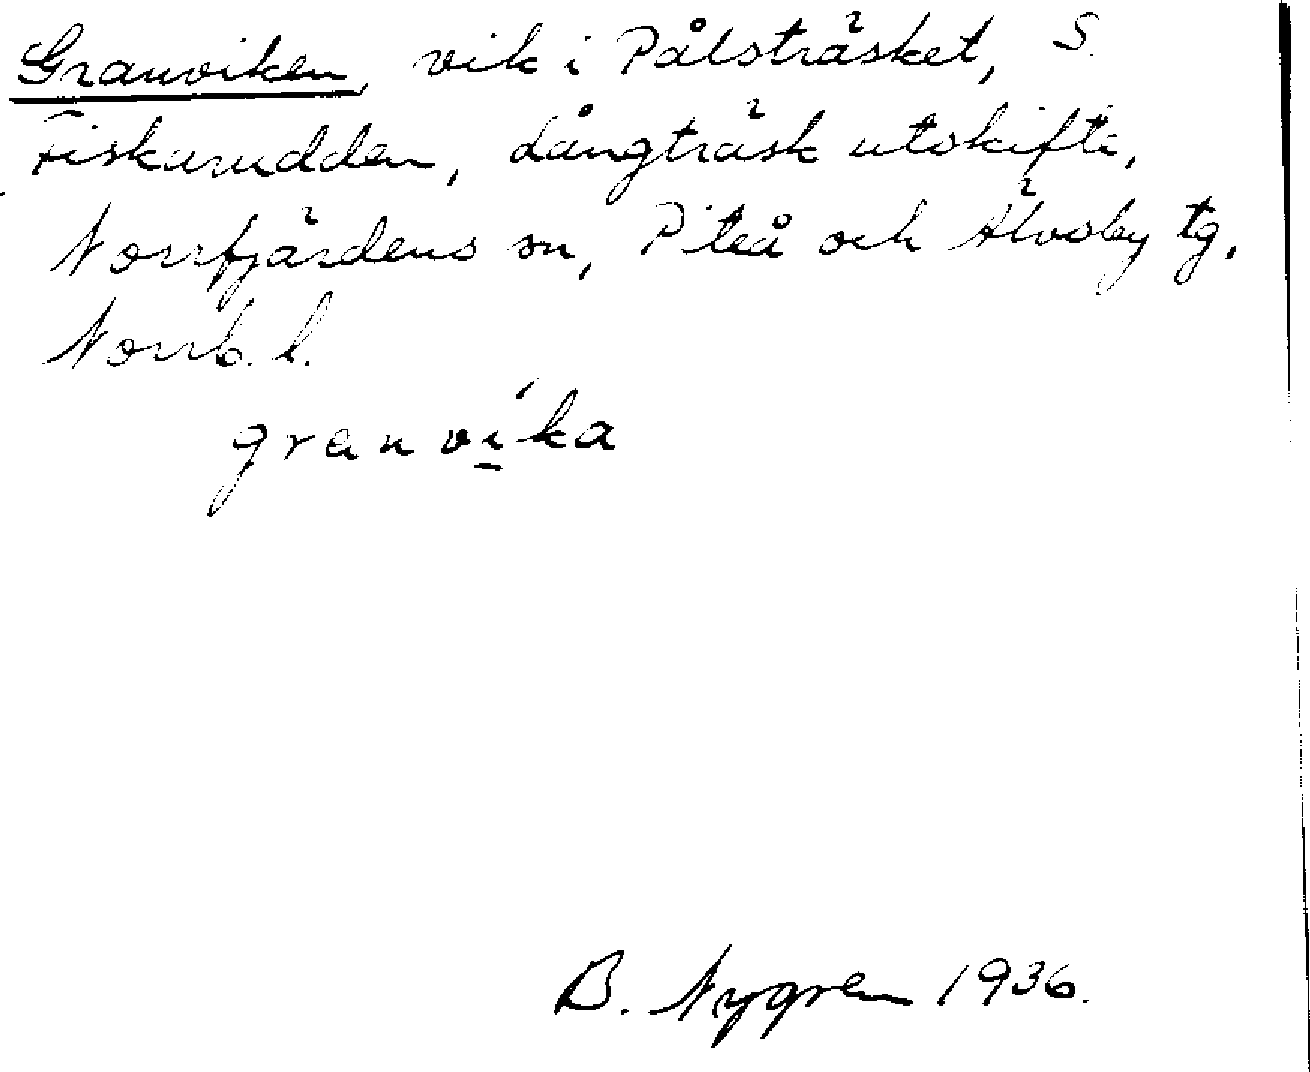 Granviken, vik i Pålsträsket, S.
Fiskarudden, Långträsk utskifte,
Norrfjärdens sn, Piteå och Älvsby tg,
Norrb. l.
granvi̱´ka
B. Nygren 1936.